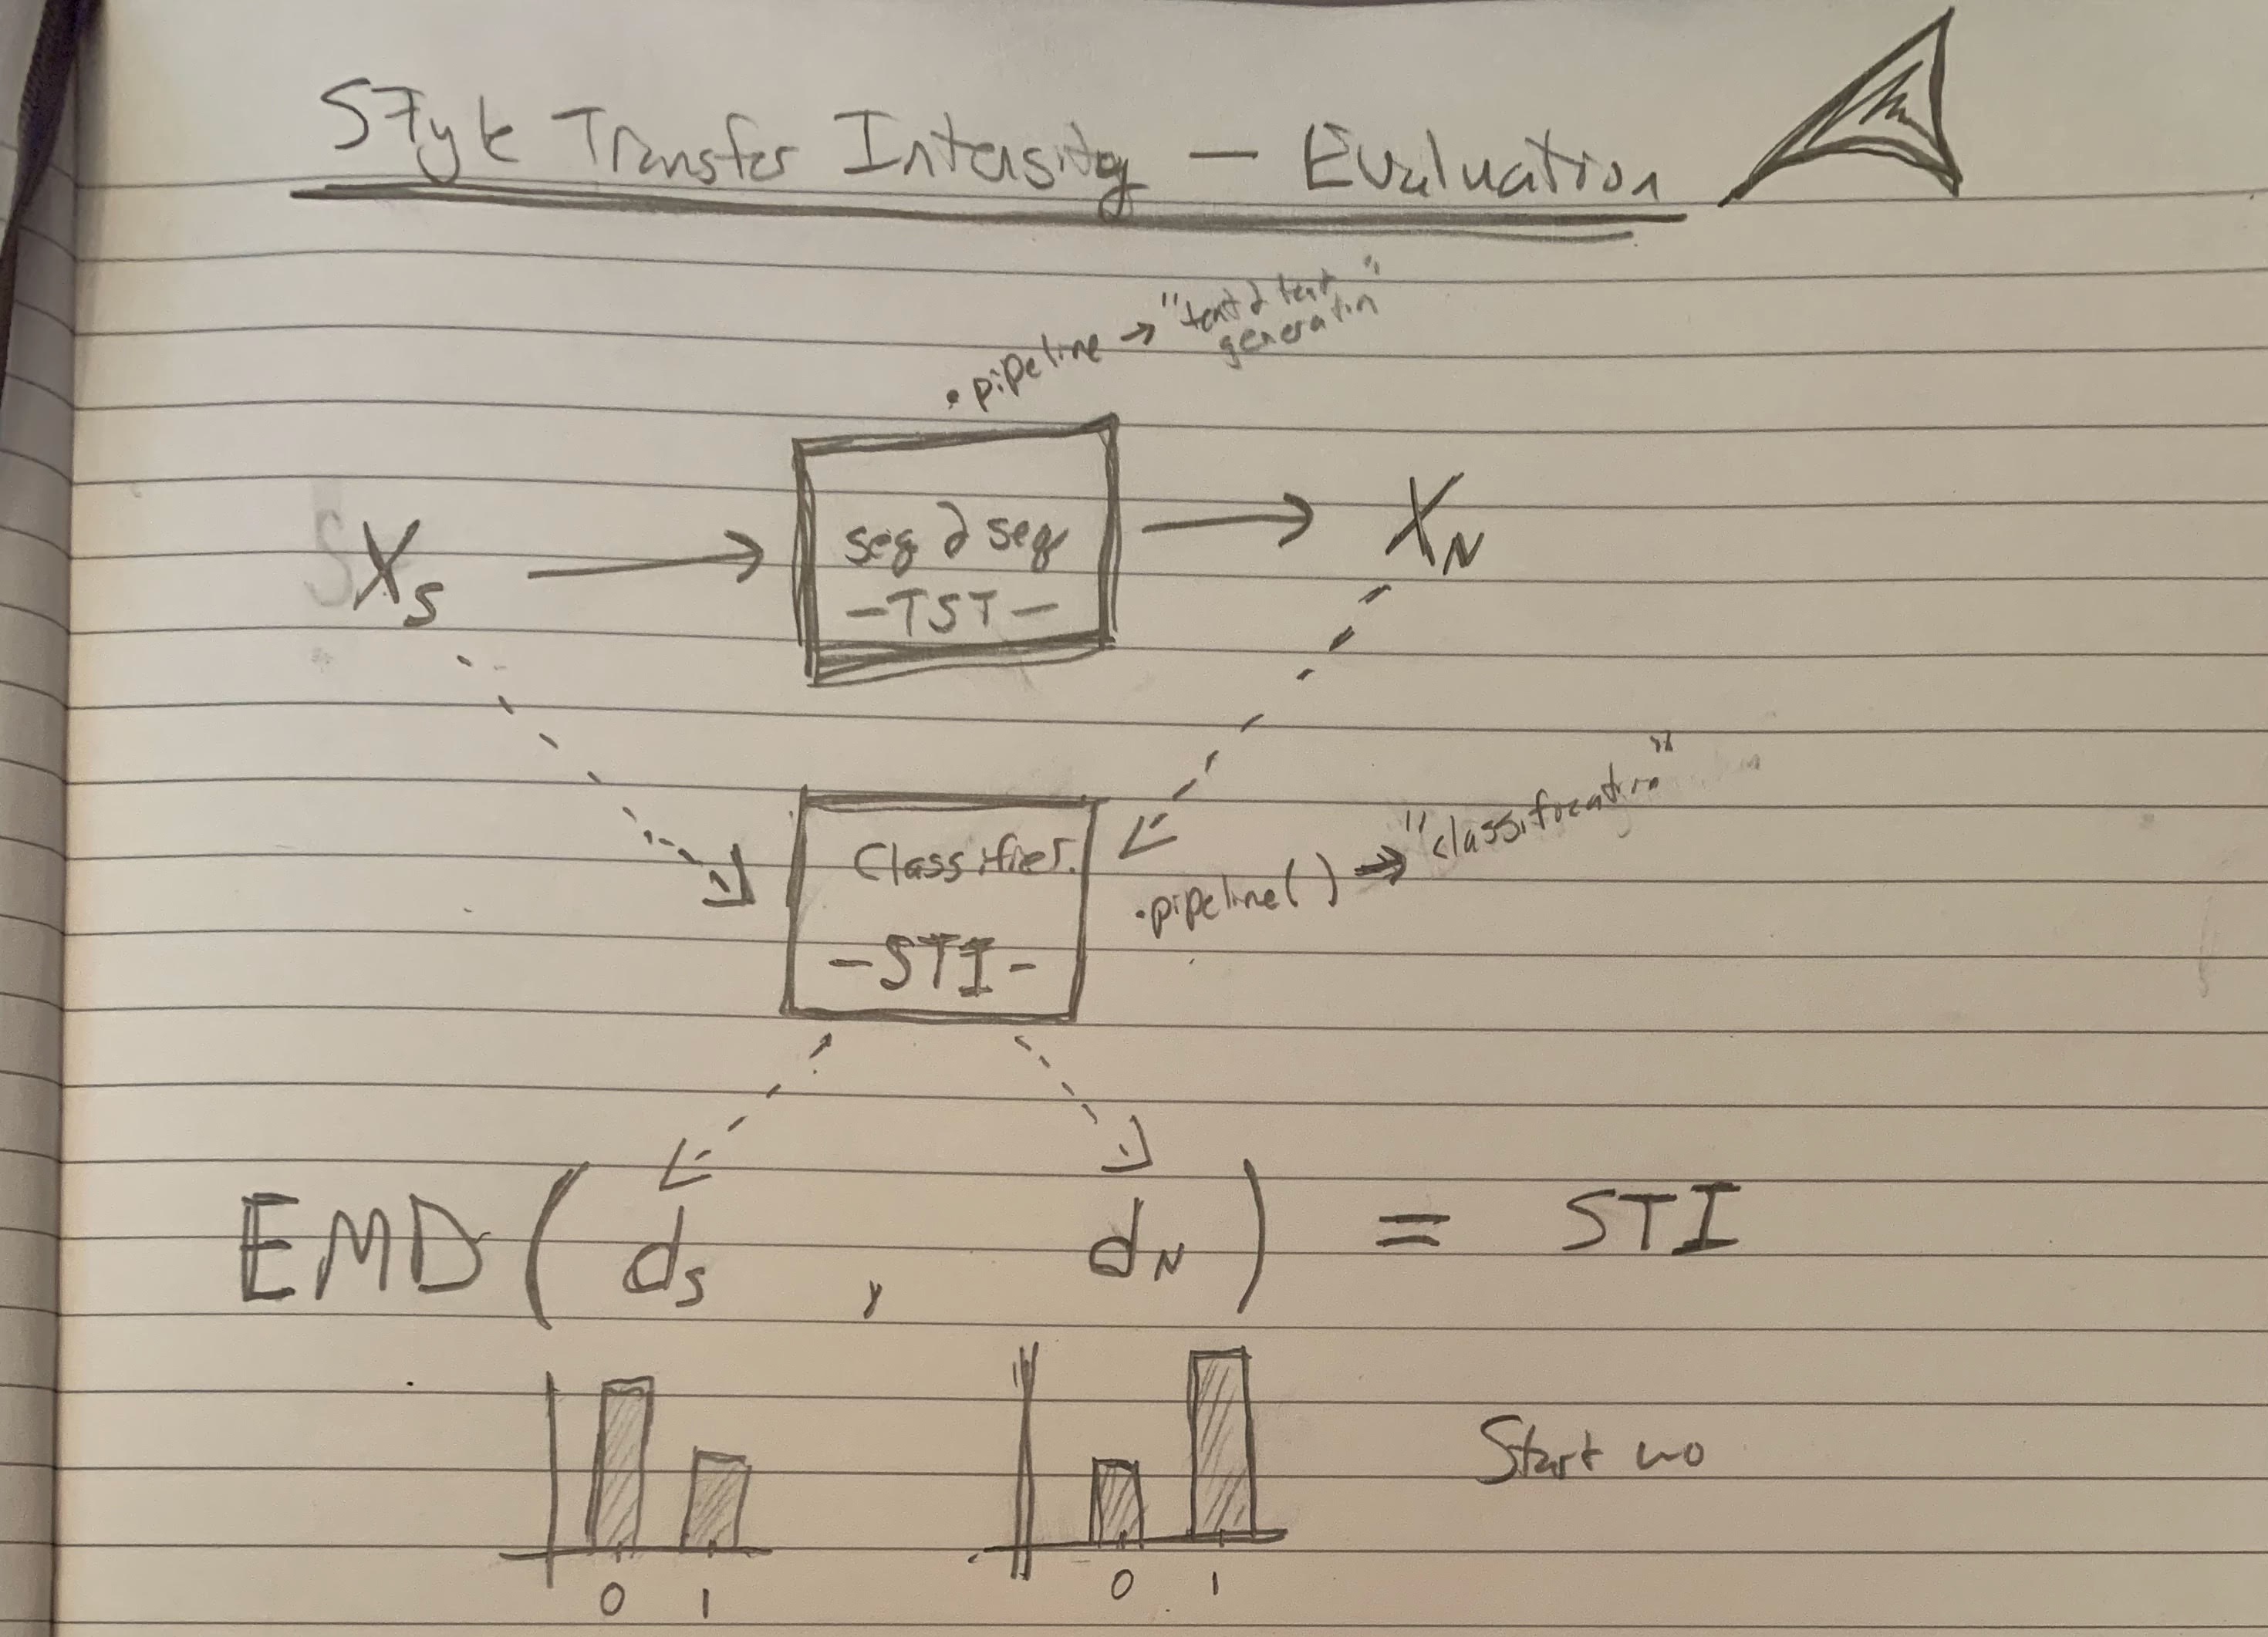 Style Transfer Intensity — Evaluation
• pipeline → "text2text
generation"
Xs → seq2seq → XN
-TST-
Classifier
• pipeline() → "classification"
-STI-
EMD ( ds , dN ) = STI
Start
0 1 0 1